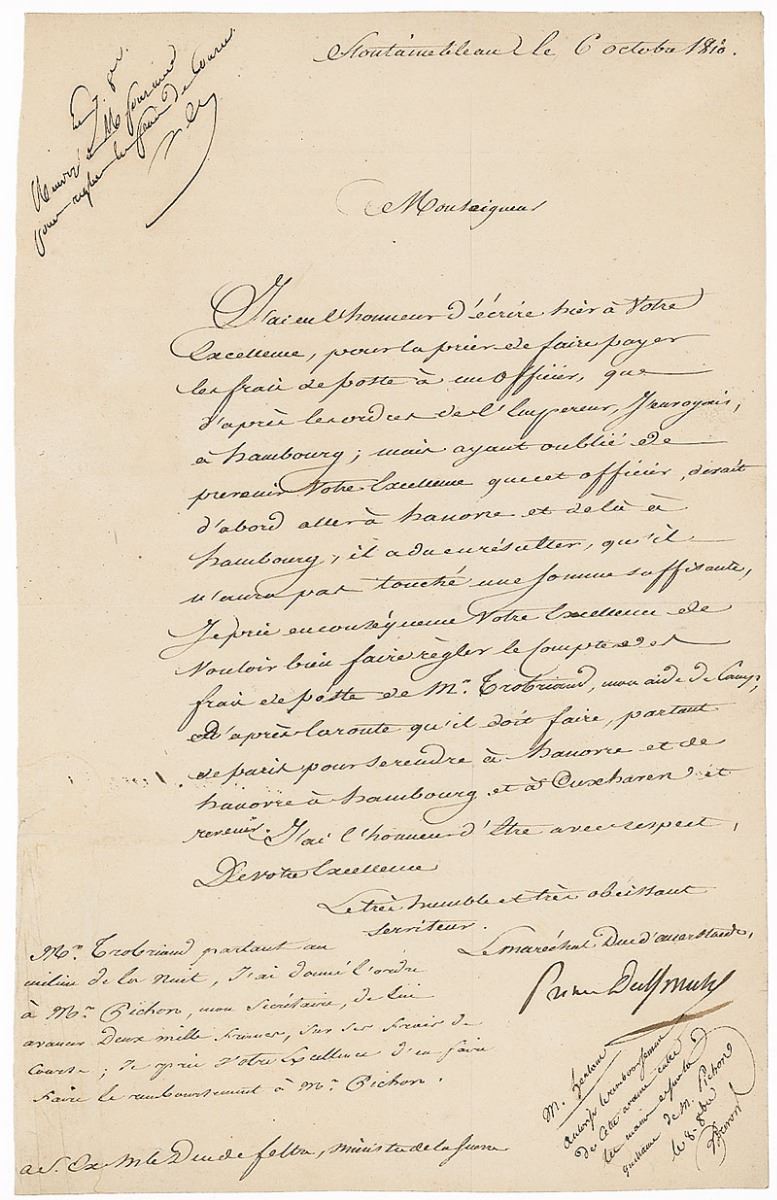 Fontainebleau le 6 octobre 1810.
Renvoyé à M
pour régler les frais de course
Monseigneur
J'ai eu l'honneur d'écrire hier à Votre
Excellence, pour la prier de faire payer
les frais de poste à un officier, que
d'après les ordres de l'Empereur, J'envoyais,
à hambourg; mais ayant oublié de
prevenir Votre Excellence que cet officier, devait
d'abord aller à hanovre et de là à
hambourg, il a du en résulter, qu'il
n'aura pas touché une somme suffisante,
Je prie en conséquence Votre Excellence de
Vouloir bien faire règler le Compte de
frais de poste de Mr. Trobriand, mon aide de Camp,
d'après la route qu'il doit faire, partant
de paris pour se rendre à hanovre et de
hanovre à hambourg et à Cuxhaven et
revenir. J'ai l'honneur d'être avec respect,
De votre Excellence
Le très humble et très obéissant
Serviteur.
Le maréchal Duc d'auerstaedt,
Mr. Trobriand partant au
milieu de la nuit, J'ai donné l'ordre
à Mr. Pichon, mon Secrétaire, de lui
avancer Deux mille francs, sur ses frais de
Course; Je prie Votre Excellence d'en faire
faire le remboursement à Mr. Pichon.
M.
autorise le remboursement
de cette avance
de M. Pichon
le 8 8bre
a S. Ex. M. le Duc de feltre, ministre de la Guerre